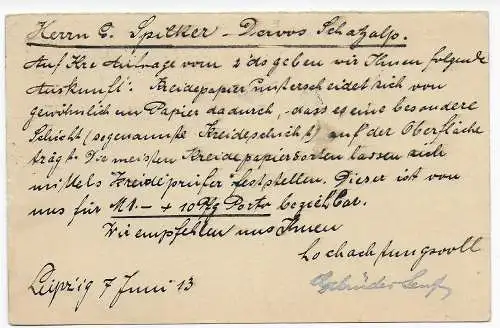 Herrn C. Spilker - Davos Schatzalp.
Auf Ihre Anfrage vom 2 ds geben wir Ihnen folgende
Auskunft. Kreidepapier unterscheidet sich von
gewöhnlichem Papier dadurch, dass es eine besondere
Schicht (sogenannte Kreideschicht) auf der Oberfläche
trägt. Die meisten Kreidepapiersorten lassen sich
mittels "Kreideprüfer" feststellen. Dieser ist von
uns für M 1.- + 10 Pfg Porto beziehbar.
Wir empfehlen uns Ihnen
hochachtungsvoll
Leipzig 7 Juni 13
Gebrüder Senf